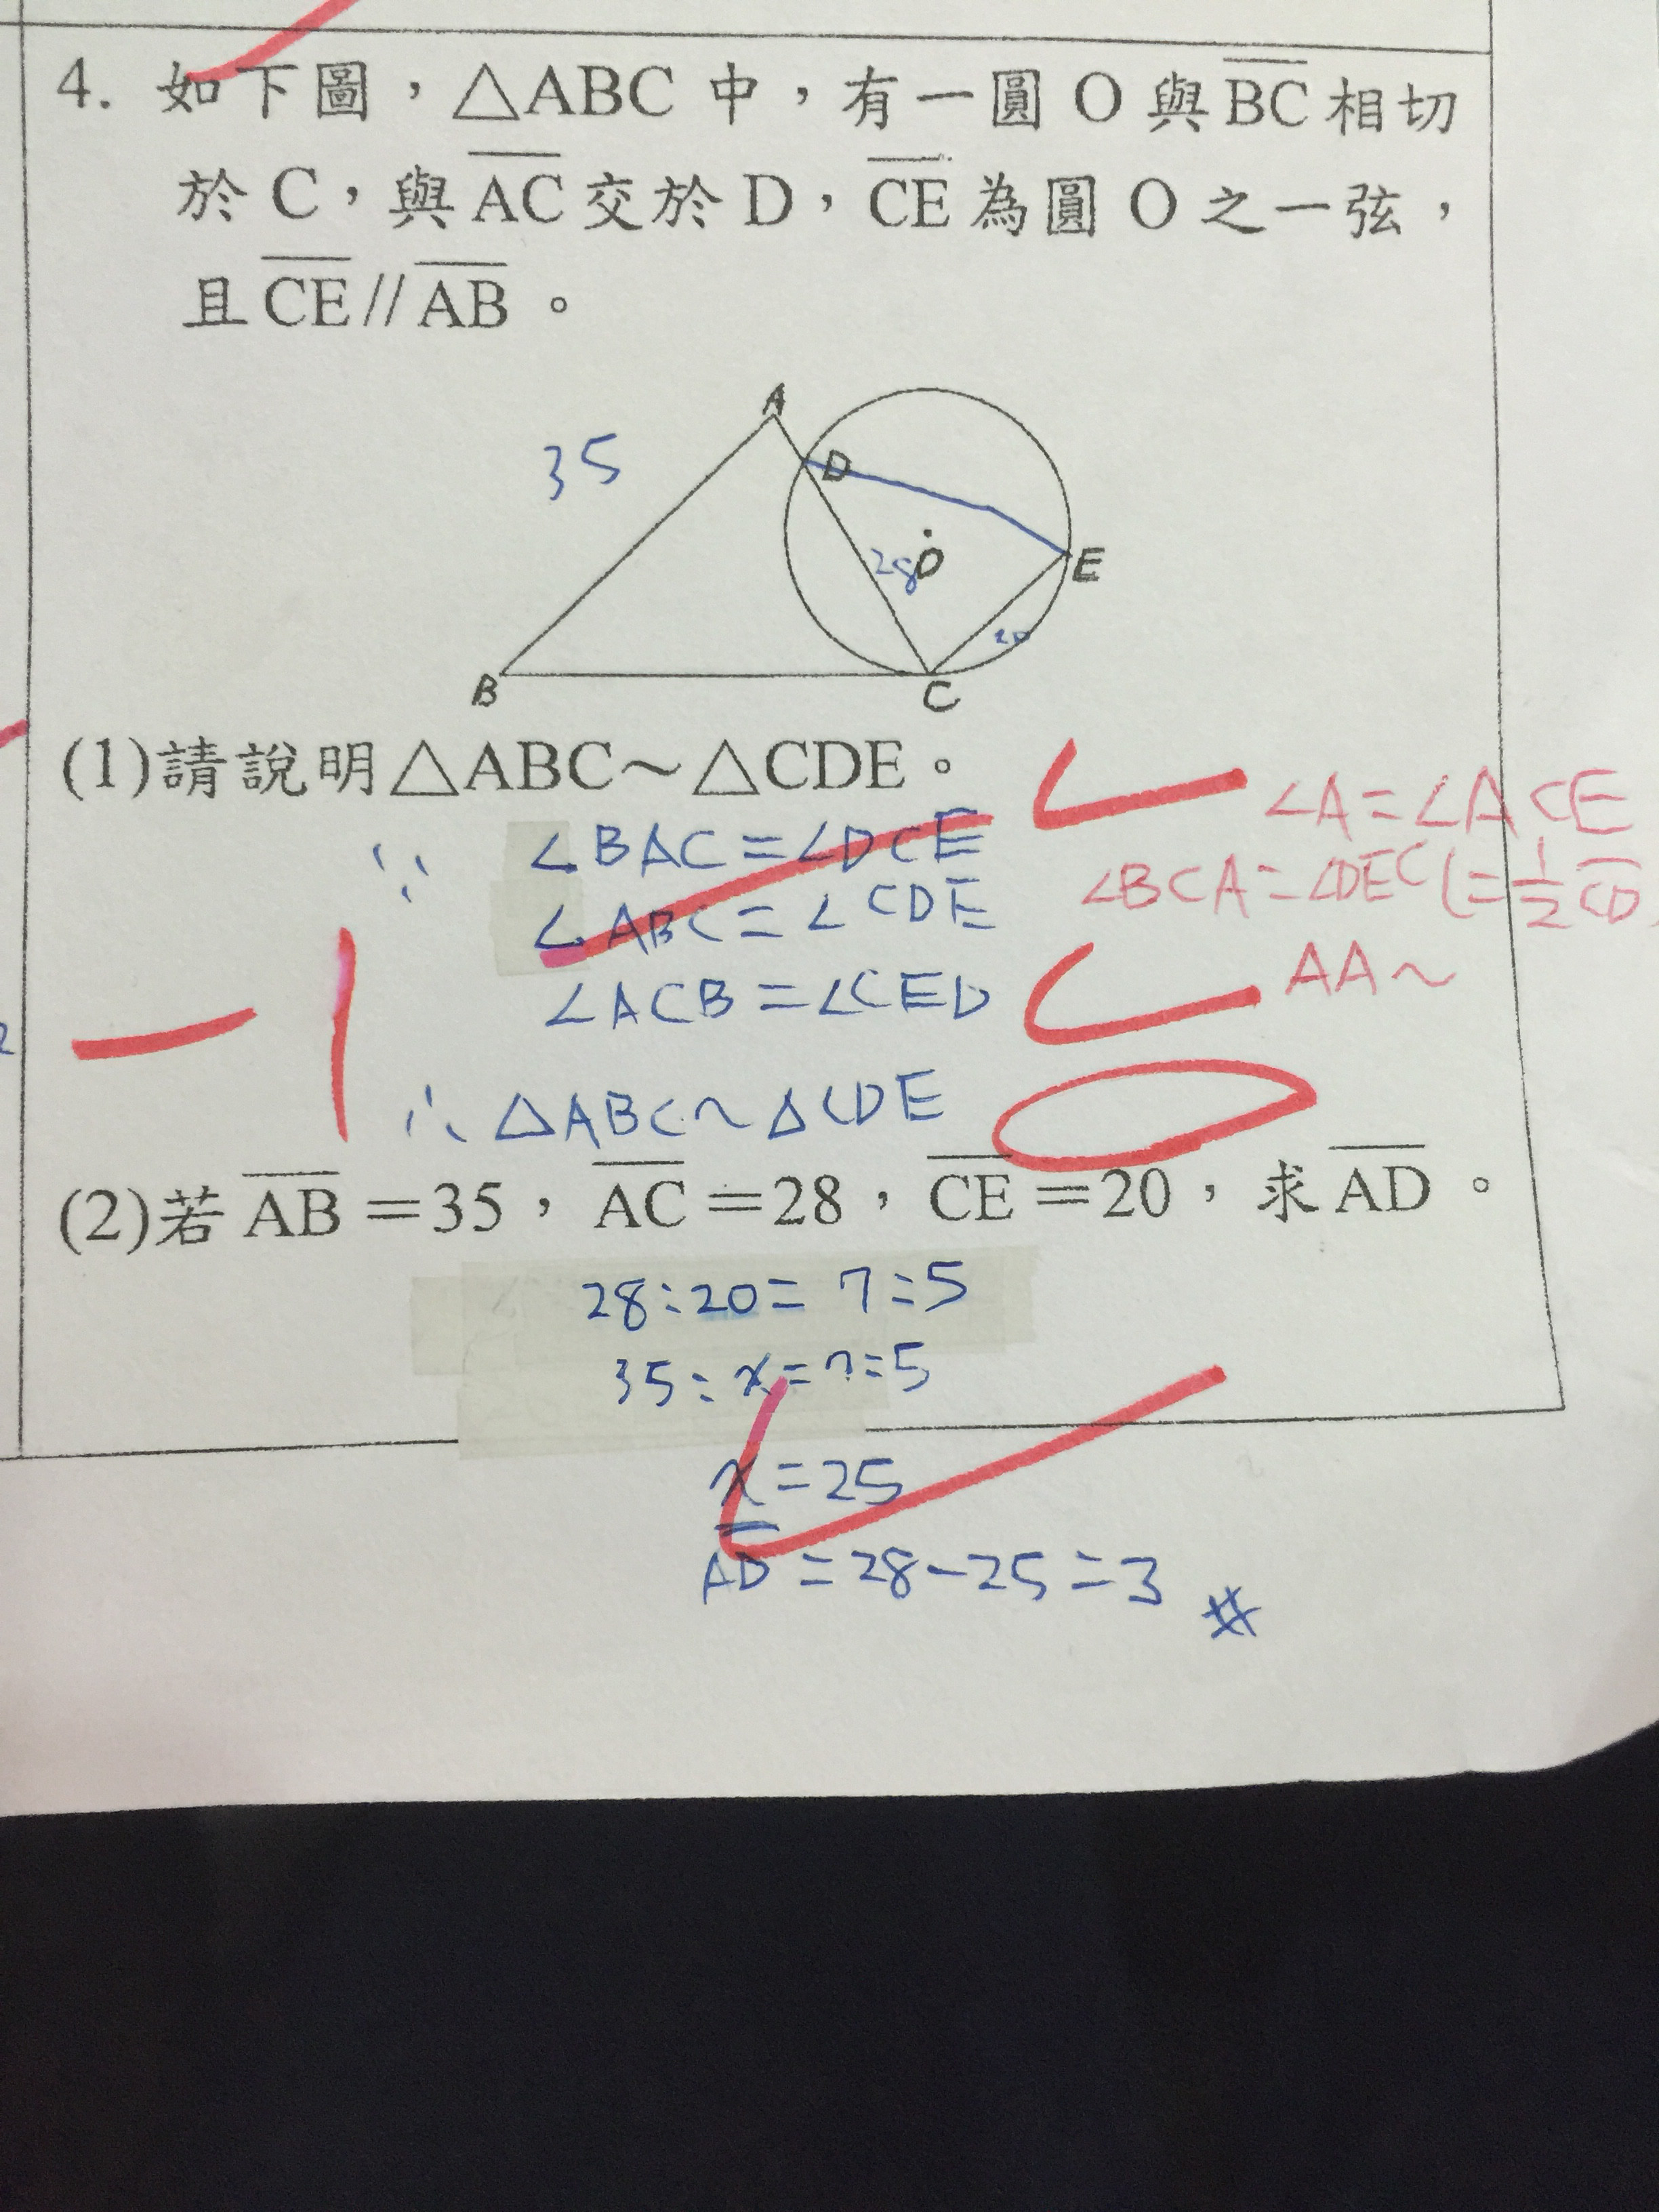 4. 如下圖，△ABC 中，有一圓 O 與 BC 相切
於 C，與 AC 交於 D，CE 為圓 O 之一弦，
且 CE // AB。
A
35
D
28
O
E
20
B
C
(1)請說明△ABC～△CDE。
∠A=∠ACE
∵ ∠BAC=∠DCE
∠BCA=∠DEC(=1/2 CD
∠ABC=∠CDE
AA~
∠ACB=∠CED
∴ △ABC~△CDE
(2)若 AB=35，AC=28，CE=20，求 AD。
28:20=7:5
35:x=7:5
x=25
AD=28-25=3 #